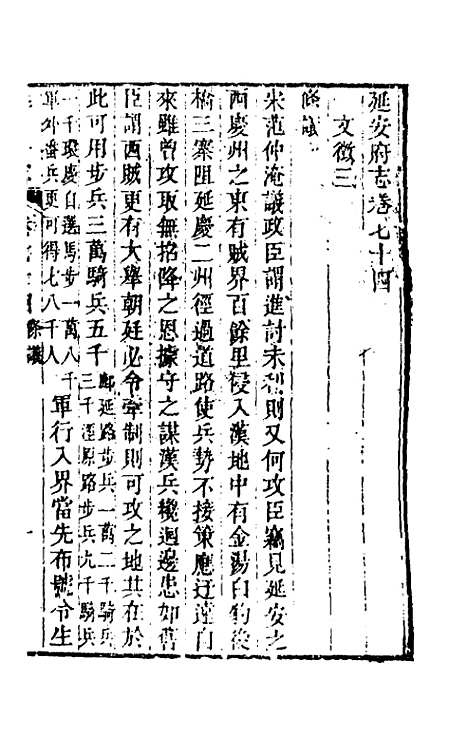 延安府志卷七十四
文徵三
條議
宋范仲淹議政臣謂進討未利則又何攻臣竊見延安之
西慶州之東有賊界百餘里侵入漢地中有金湯白豹後
橋三寨阻延慶二州徑過道路使兵勢不接策應迂遠自
來雖曾攻取無招降之恩據守之謀漢兵纔迴邊患如舊
臣謂西賊更有大舉朝廷必令牽制則可攻之地其在於
此可用步兵三萬騎兵五千鄜延路步兵一萬二千騎兵
三千涇原路步兵九千騎兵
一千環慶自選馬步一萬八千
軍外番兵更可得七八千人軍行入界當先布號令生
條議